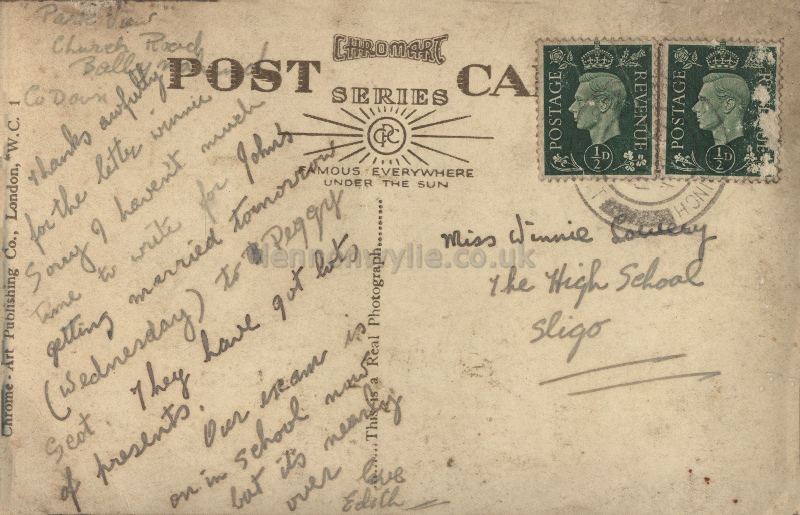 Park View
Church Road
Bally
Co Down
Thanks awfully
for the letter Winnie
Sorry I haven't much
time to write for John's
getting married tomorrow
(Wednesday) to Peggy
Scot. They have got lots
of presents.
Our exam is
on in School now
but it's nearly
over love
Edith
POST CA
CHROMART
SERIES
CPC
FAMOUS EVERYWHERE
UNDER THE SUN
Chrome-Art Publishing Co., London, W.C. 1
This is a Real Photograph
POSTAGE REVENUE
½D
POSTAGE RE UE
½D
NCH
Miss Winnie
The High School
Sligo
wylie.co.uk